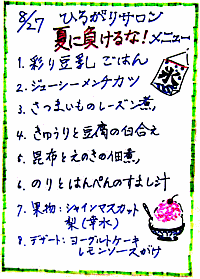 8/27 ひろがりサロン
夏に負けるな!メニュー
1. 彩り豆乳ごはん
氷
2. ジューシーメンチカツ
3. さつまいものレーズン煮
4. きゅうりと豆腐の白合え
5. 昆布とえのきの佃煮
6. のりとはんぺんのすまし汁
7. 果物:シャインマスカット
梨(幸水)
8. デザート:ヨーグルトケーキ
レモンソースがけ